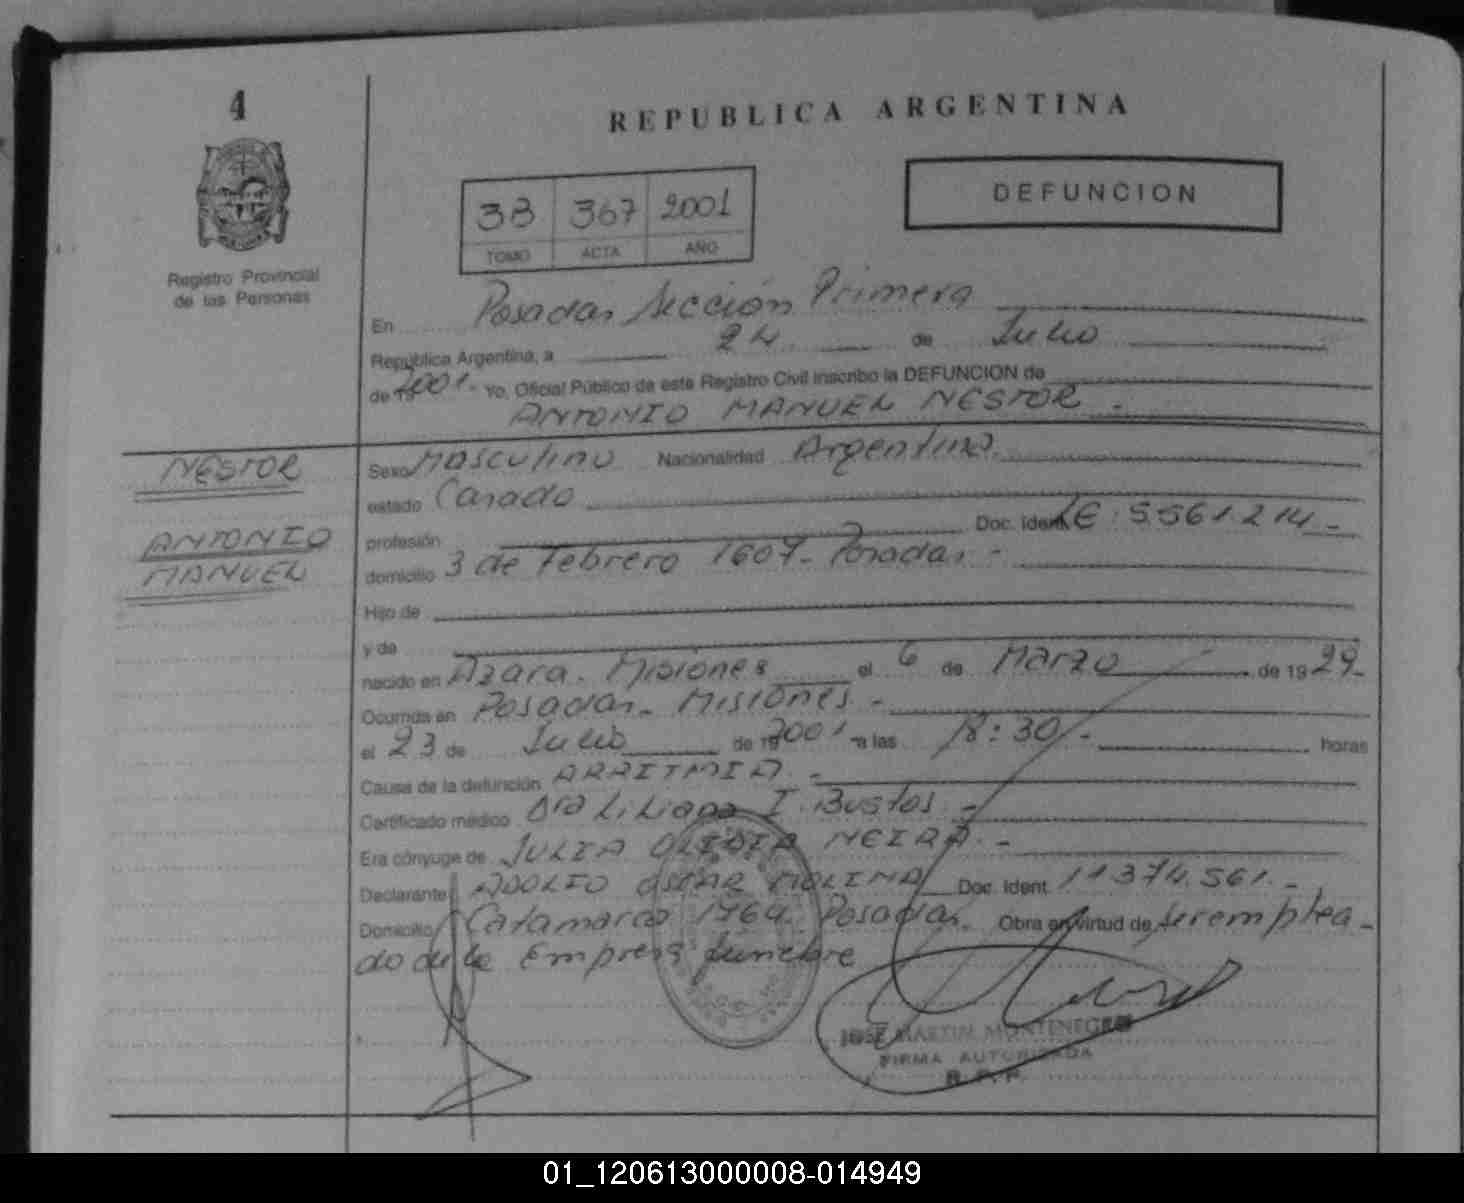 4
REPUBLICA ARGENTINA
DEFUNCION
3B 367 2001
TOMO ACTA AÑO
Registro Provincial
de las Personas
En Posadas Sección Primera
República Argentina, a 24 de Julio
de 19 2001.- Yo, Oficial Público de este Registro Civil inscribo la DEFUNCION de
ANTONIO MANUEL NESTOR.-
NESTOR
ANTONIO
MANUEL
Sexo Masculino Nacionalidad Argentina.
estado Casado
profesión Doc. Ident. LE: 5.561.214.-
domicilio 3 de Febrero 1607- Posadas.-
Hijo de
y de
nacido en Azara. Misiones el 6 de Marzo de 1929.-
Ocurrida en Posadas- Misiones.-
el 23 de Julio de 19 2001.- a las 18:30.- horas
Causa de la defunción ARRITMIA.-
Certificado médico Dra Liliana I. Bustos.-
Era cónyuge de JULIA OLIDIA NEIRA.-
Declarante ADOLFO OSCAR MOLINA Doc. Ident. 11.374.561.-
Domicilio Catamarca 1964 Posadas. Obra en virtud de ser emplea-
do de la Empresa funebre
JOSE MARTIN MONTENEGRO
FIRMA AUTORIZADA
R.P.P.
01_120613000008-014949